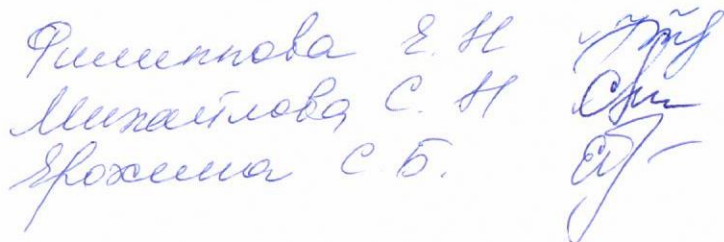 Филиппова Е. Н
Михайлова С. Н
Ерохина С. Б.